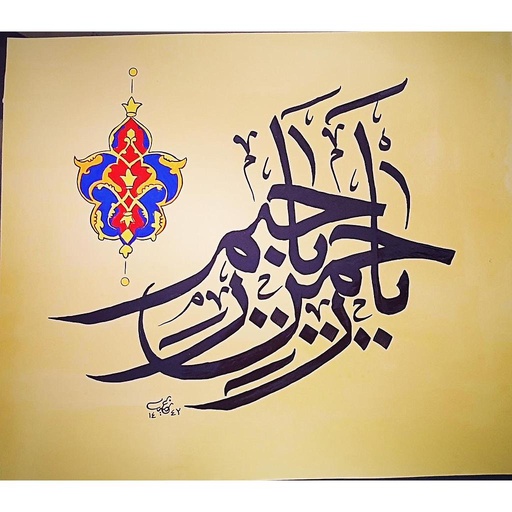 يا رحمن يا رحيم
١٤٤٢